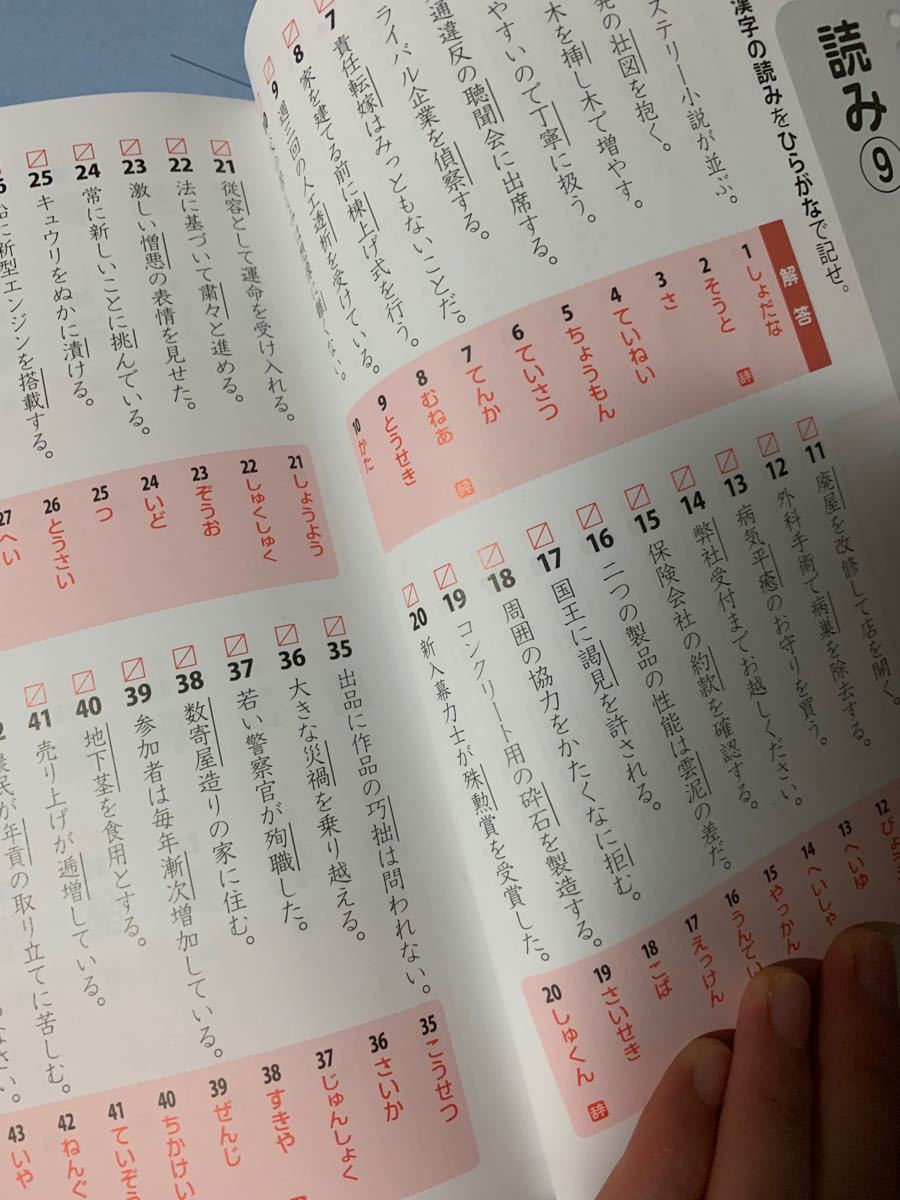 読み⑨
漢字の読みをひらがなで記せ。
ステリー小説が並ぶ。
の壮図を抱く。
木を挿し木で増やす。
やすいので丁寧に扱う。
通違反の聴聞会に出席する。
ライバル企業を偵察する。
7 責任転嫁はみっともないことだ。
8 家を建てる前に棟上げ式を行う。
9 週三回の人工透析を受けている。
解答
1 しょだな
2 そうと
3 さ
4 ていねい
5 ちょうもん
6 ていさつ
7 てんか
8 むねあ
9 とうせき
10 かた
辞
辞
11 廃屋を改修して店を開く。
12 外科手術で病巣を除去する。
13 病気平癒のお守りを買う。
14 弊社受付までお越しください。
15 保険会社の約款を確認する。
16 二つの製品の性能は雲泥の差だ。
17 国王に謁見を許される。
18 周囲の協力をかたくなに拒む。
19 コンクリート用の砕石を製造する。
20 新入幕力士が殊勲賞を受賞した。
12 びょう
13 へいゆ
14 へいしゃ
15 やっかん
16 うんでい
17 えっけん
18 こば
19 さいせき
20 しゅくん
辞
21 従容として運命を受け入れる。
22 法に基づいて粛々と進める。
23 激しい憎悪の表情を見せた。
24 常に新しいことに挑んでいる。
25 キュウリをぬかに漬ける。
に新型エンジンを搭載する。
21 しょうよう
22 しゅくしゅく
23 ぞうお
24 いど
25 つ
26 とうさい
27 へい
35 出品に作品の巧拙は問われない。
36 大きな災禍を乗り越える。
37 若い警察官が殉職した。
38 数寄屋造りの家に住む。
39 参加者は毎年漸次増加している。
40 地下茎を食用とする。
41 売り上げが逓増している。
農民が年貢の取り立てに苦しむ。
なさい。
35 こうせつ
36 さいか
37 じゅんしょく
38 すきや
39 ぜんじ
40 ちかけい
41 ていぞう
42 ねんぐ
43 いや